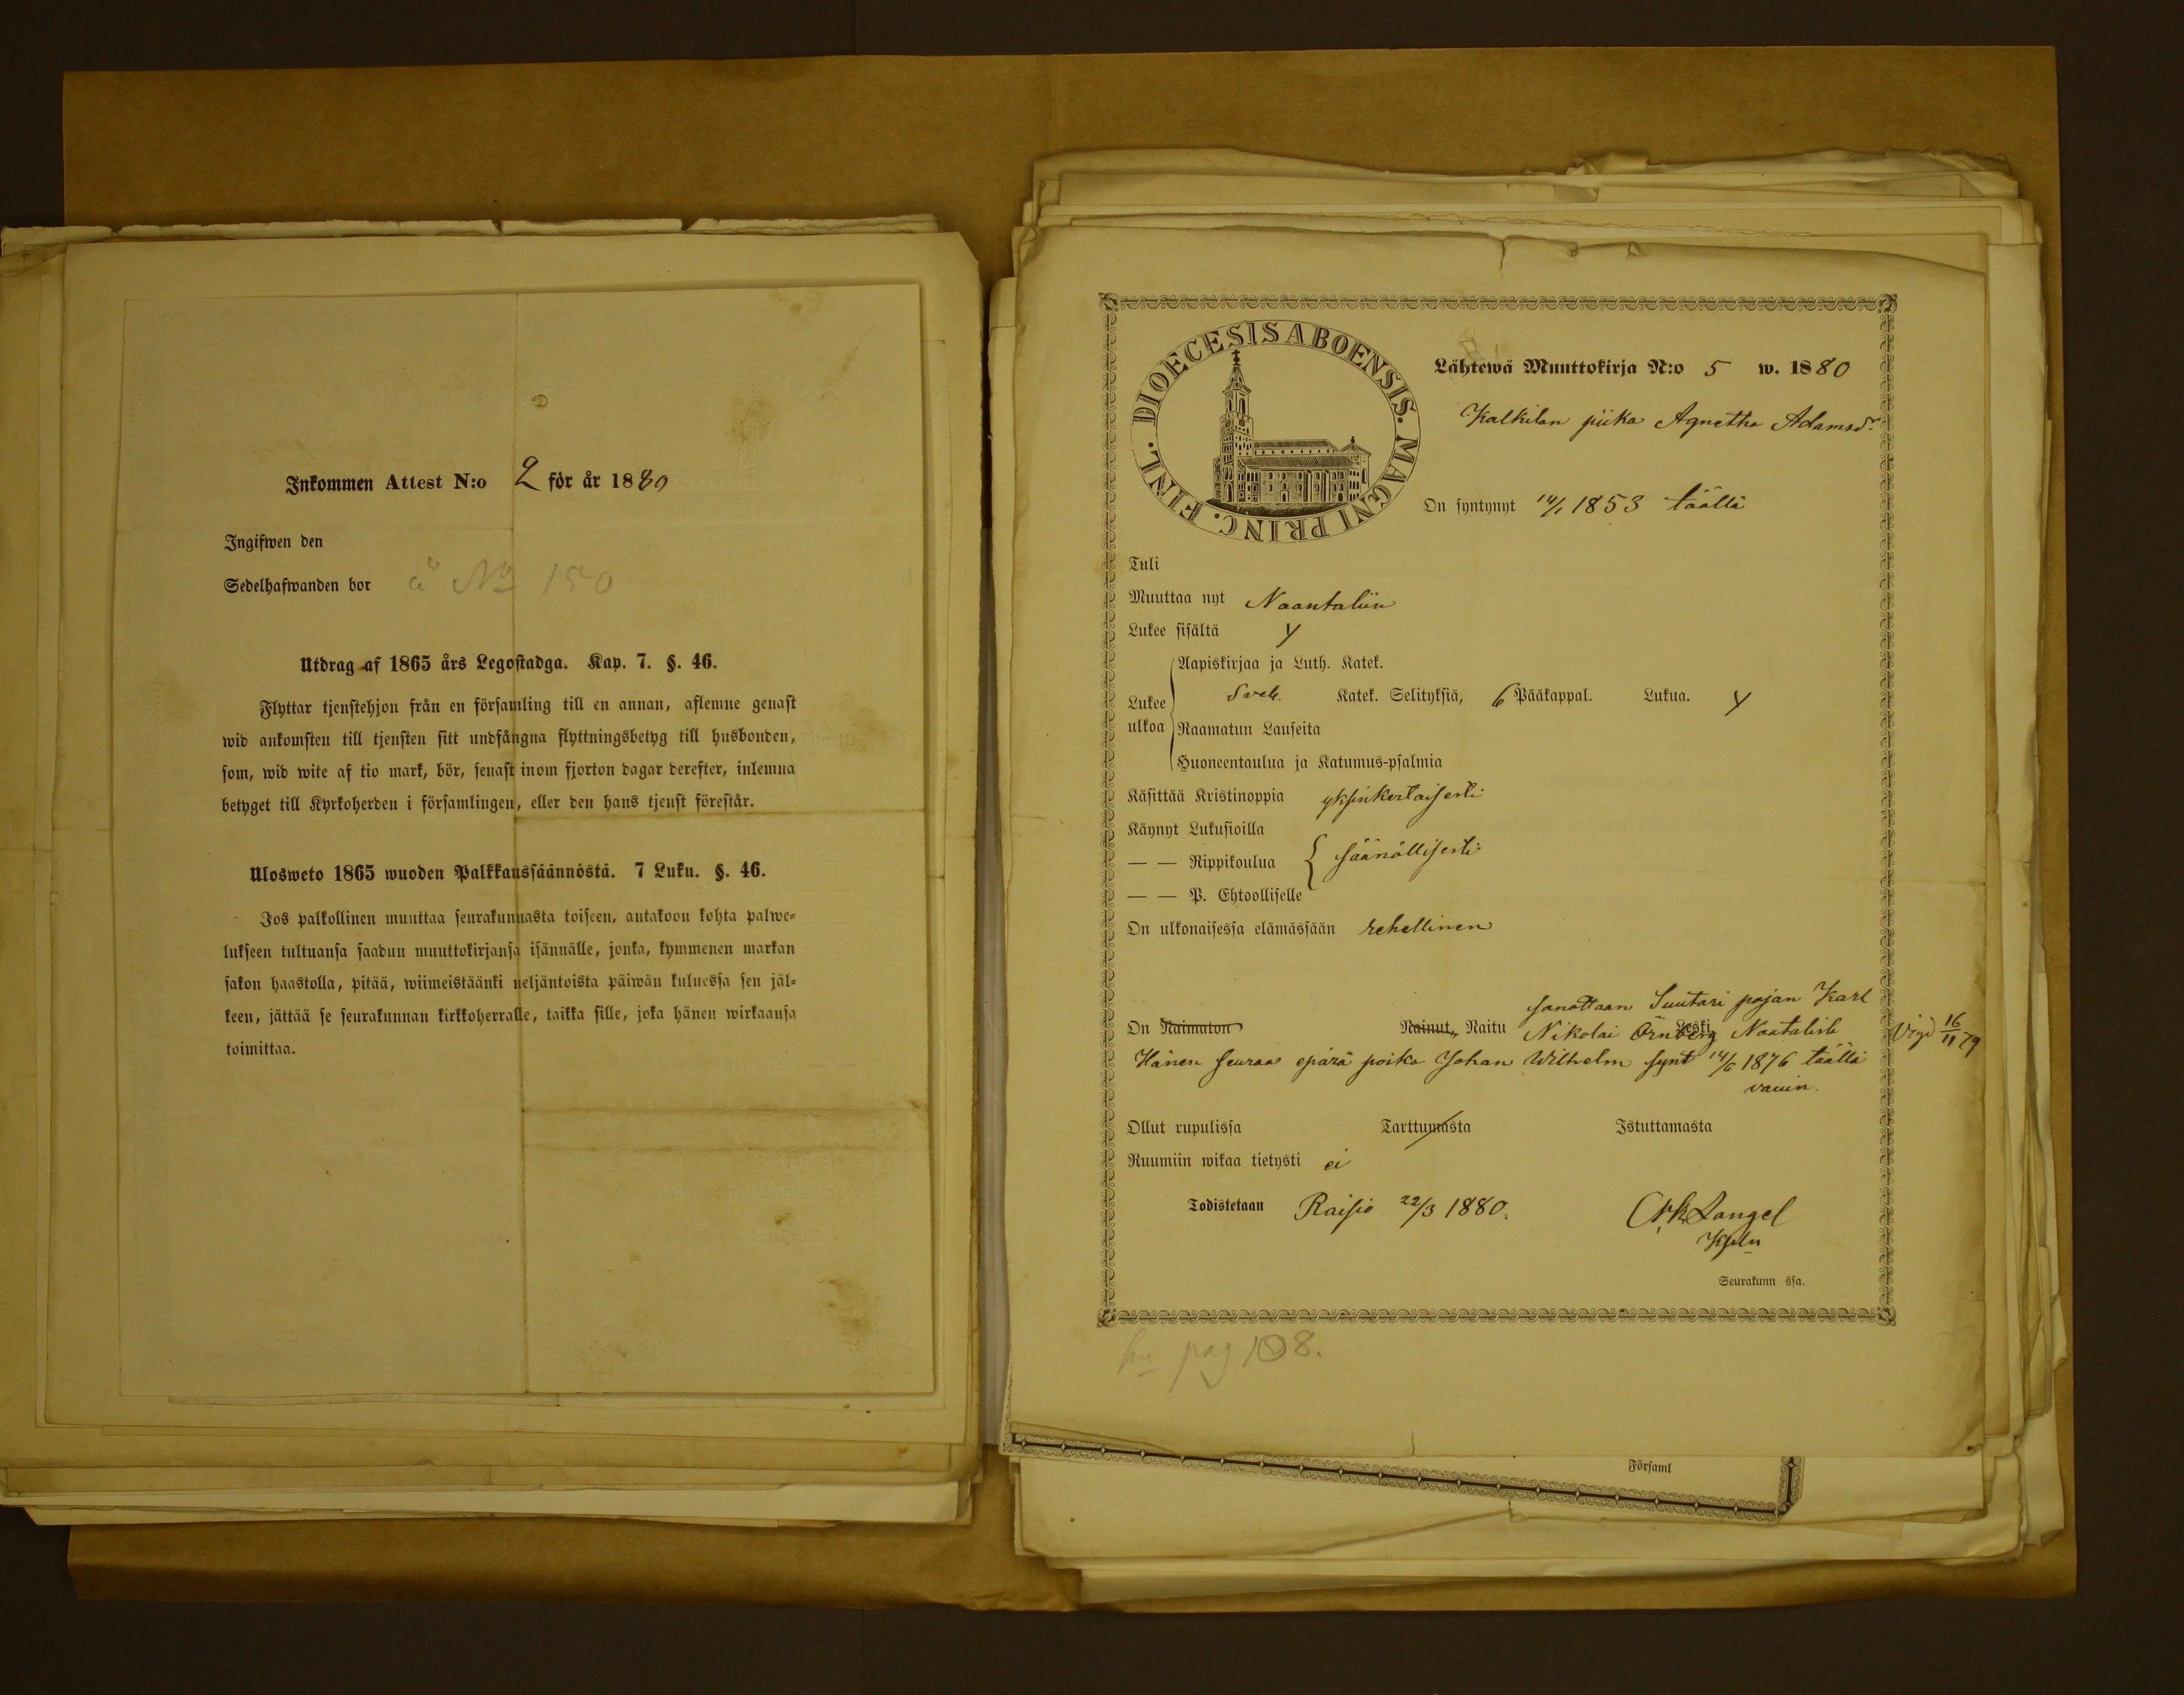 Inkommen Attest N:o 2 för år 1880
Ingifwen den
Sedelhafwanden bor å No 150
Utdrag af 1865 års Legostadga. Kap. 7. §. 46.
Flyttar tjenstehjon från en församling till en annan, aflemne genast
wid ankomsten till tjensten sitt undfångna flyttningsbetyg till husbonden,
som, wid wite af tio mark, bör, senast inom fjorton dagar derefter, inlemna
betyget till Kyrkoherden i församlingen, eller den hans tjenst förestår.
Ulosweto 1865 wuoden Palkkaussäännöstä. 7 Luku. §. 46.
Jos palkollinen muuttaa seurakunnasta toiseen, antakoon kohta palwe-
lukseen tultuansa saadun muuttokirjansa isännälle, jonka, kymmenen markan
sakon haastolla, pitää, wiimeistäänki neljäntoista päiwän kuluessa sen jäl-
keen, jättää se seurakunnan kirkkoherralle, taikka sille, joka hänen wirkaansa
toimittaa.
DIOECESIS ABOENSIS. MAGNI PRINC. FINL.
Lähtewä Muuttokirja N:o 5 w. 1880
Kalkilan piika Agnetha Adamsdr
On syntynyt 14/1 1853 täällä
Tuli
Muuttaa nyt Naantaliin
Lukee sisältä y
Aapiskirjaa ja Luth. Katek.
Lukee ulkoa Sveb. Katek. Selityksiä, 6 Pääkappal. Lukua. y
Raamatun Lauseita
Huoneentaulua ja Katumus-psalmia
Käsittää Kristinoppia yksinkertaisesti
Käynyt Lukusioilla
— — Rippikoulua säänöllisesti
— — P. Ehtoolliselle
On ulkonaisessa elämässään rehellinen
sanottaan Suutari pojan Karl
On Naimaton Nainut, Naitu Nikolai Örnberg Leski Naatalista Vigd 16/11 79
Hänen seuraa epärä poika Johan Wilhelm synt 14/6 1876 täällä
vauin.
Ollut rupulissa Tarttumasta Istuttamasta
Ruumiin wikaa tietysti ei
Todistetaan Raisio 22/3 1880. Langel
Kpln
Seurakunn ssa.
pag 108.
Församl